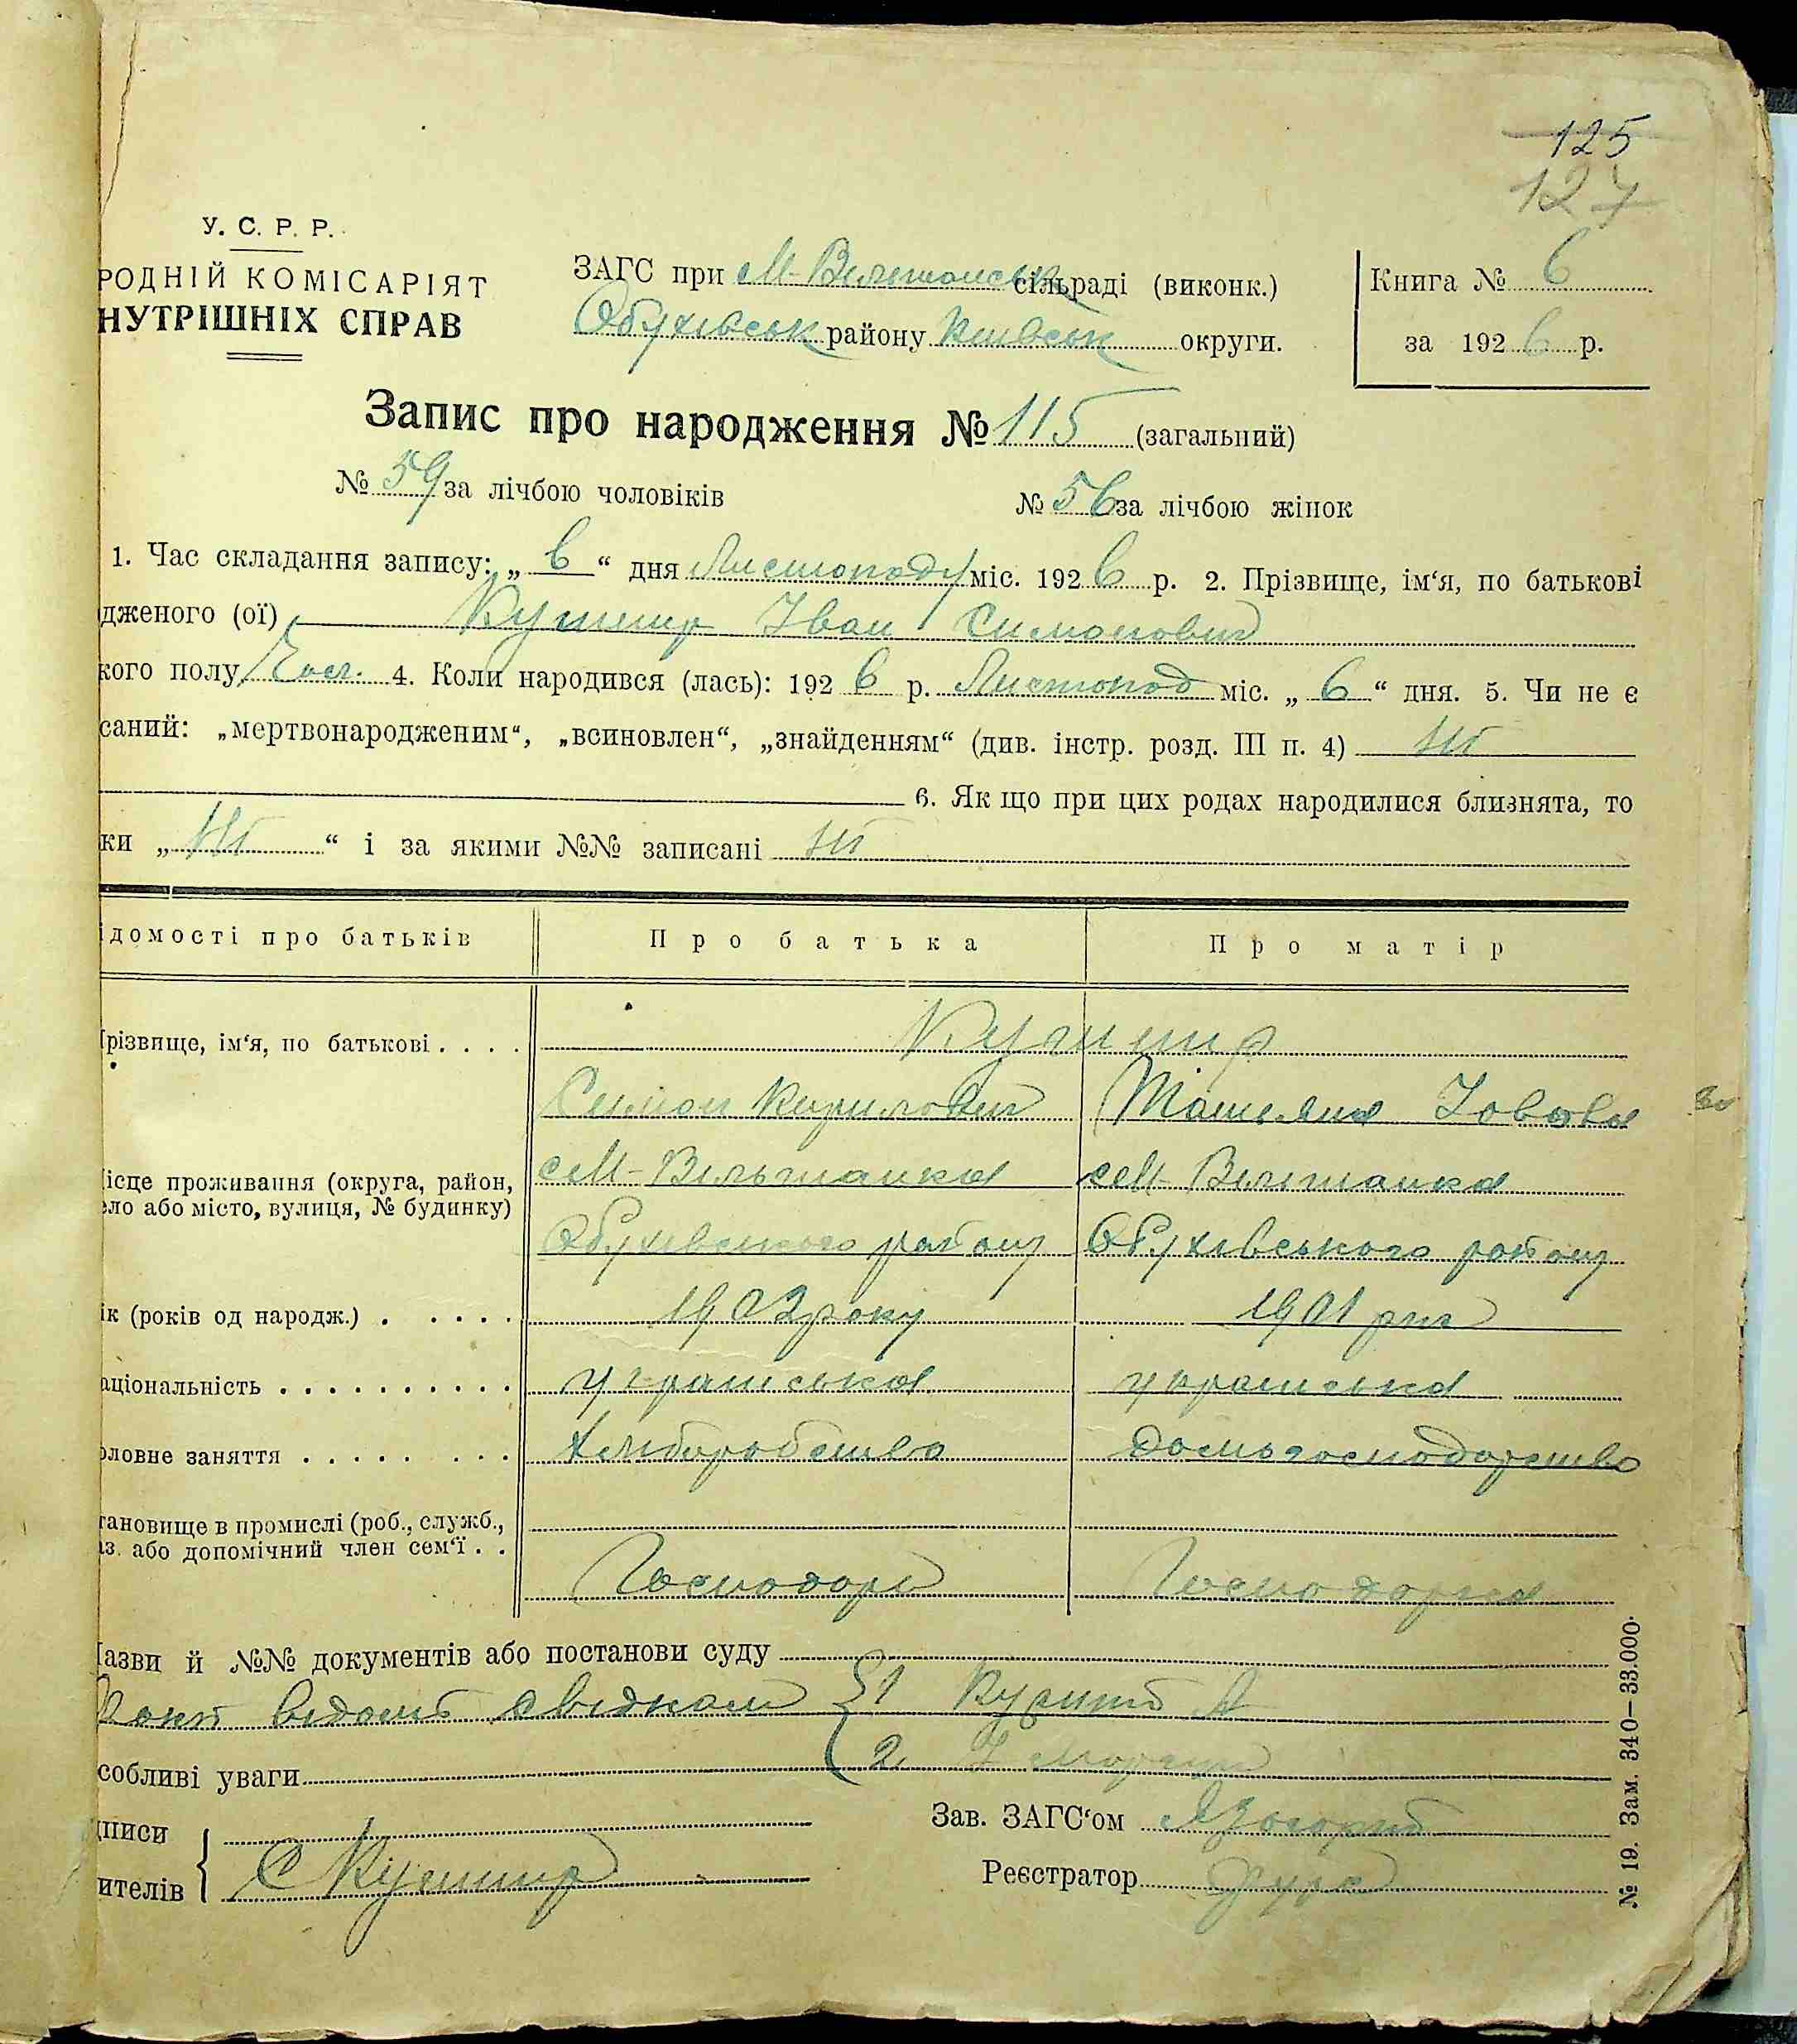 125
127
У. С. Р. Р.
РОДНІЙ КОМІСАРІЯТ
НУТРІШНІХ СПРАВ
ЗАГС при М-Вільшанськ сільраді (виконк.)
Обухівськ району Київськ округи.
Книга № 6
за 1926 р.
Запис про народження № 115 (загальний)
№ 59 за лічбою чоловіків
№ 56 за лічбою жінок
1. Час складання запису: „ 6 “ дня Листопаду міс. 1926 р. 2. Прізвище, ім‘я, по батькові
дженого (ої) Кушнир Іван Симонович
кого полу Чол. 4. Коли народився (лась): 1926 р. Листопад міс. „ 6 “ дня. 5. Чи не є
саний: „мертвонародженим“, „всиновлен“, „знайденням“ (див. інстр. розд. III п. 4) Ні
6. Як що при цих родах народилися близнята, то
ки „ Ні “ і за якими №№ записані Ні
ідомості про батьків
Про батька
Про матір
різвище, ім‘я, по батькові . . . .
Кушнир
Симон Кирилович
Іовова
ісце проживання (округа, район,
ло або місто, вулиця, № будинку)
с М-Вільшанка
с М-Вільшанка
Обухівського району
Обухівського району
ік (років од народж.) . . . . .
1902 року
1901 рік
аціональність . . . . . . . . . .
українська
українська
оловне заняття . . . . . . . .
хліборобство
домогосподарство
тановище в промислі (роб., служб.,
аз. або допомічний член сем‘ї . .
Господарь
Господарка
азви й №№ документів або постанови суду
відомі свідкам { 1
2.
собливі уваги
писи
ителів {
С Кушнир
Зав. ЗАГС‘ом
Реєстратор
№ 19. Зам. 340—33.000.